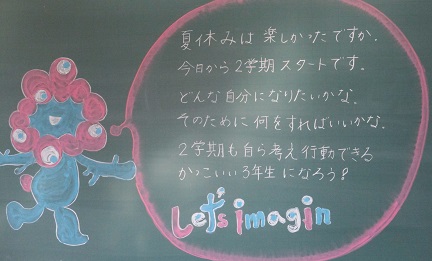 夏休みは楽しかったですか.
今日から2学期スタートです.
どんな自分になりたいかな.
そのために何をすればいいかな.
2学期も自ら考え行動できる
かっこいい3年生になろう?
Let's imagin